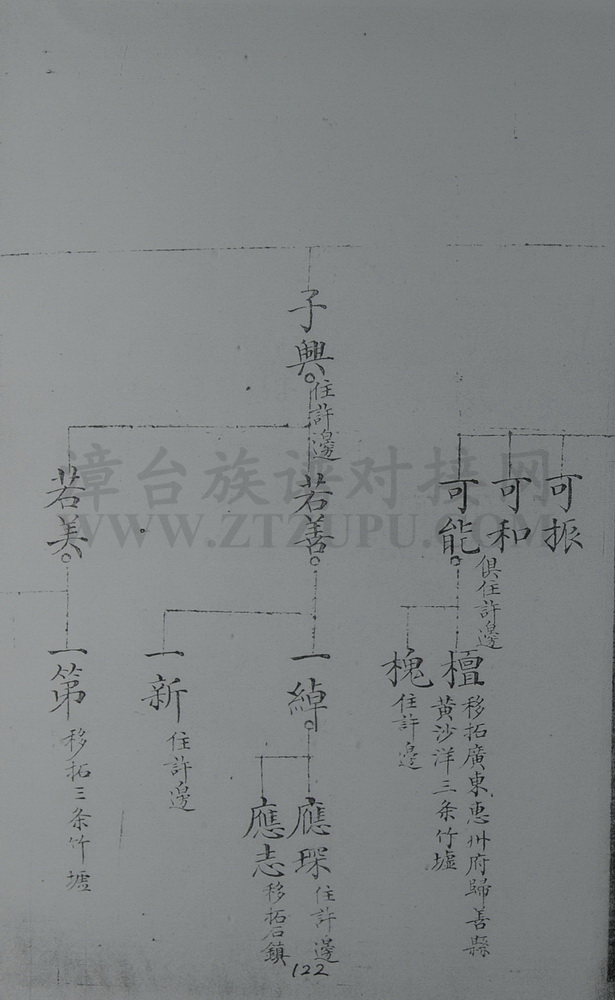 子興
住許邊
可振
可和
可能
俱住許邊
若善
若美
檀
移拓廣東惠州府歸善縣
黃沙洋三条竹墟
槐
住許邊
一綽
一新
住許邊
一第
移拓三条竹墟
應琛
住許邊
應志
移拓石鎮
122
漳台族谱对接网
WWW.ZTZUPU.COM